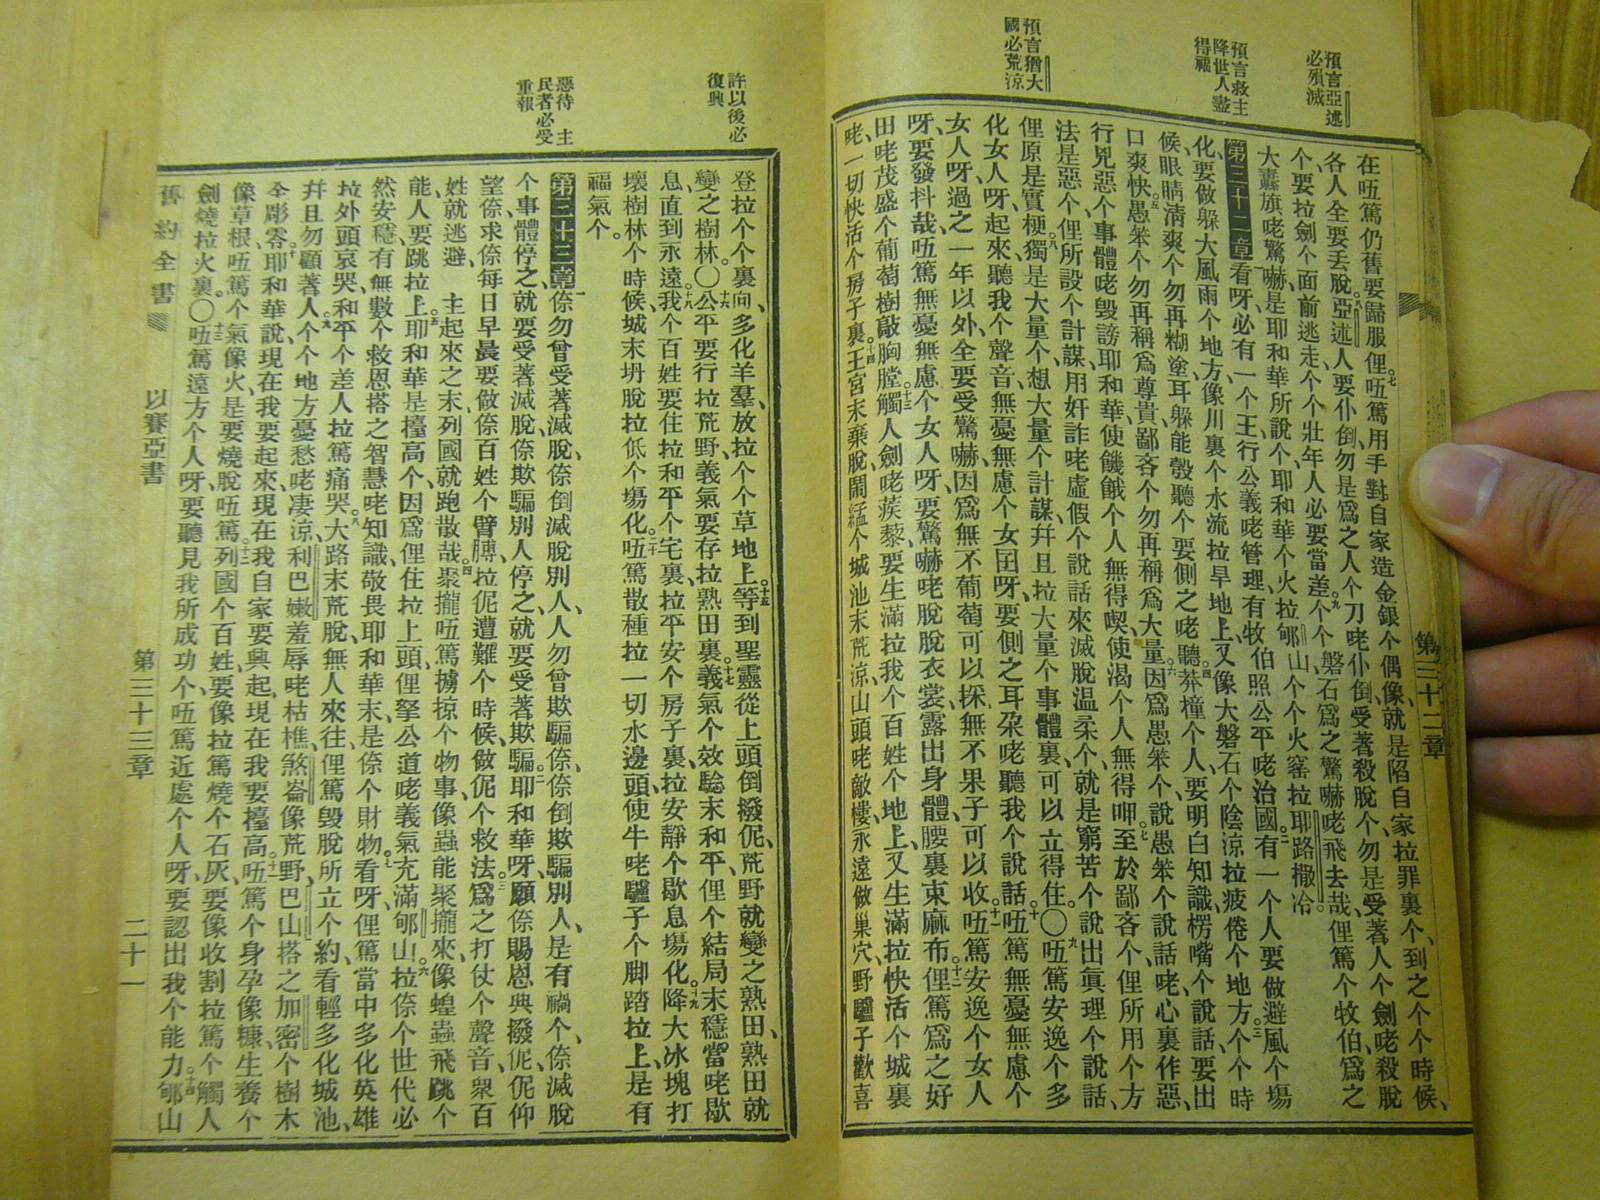 預言亞述
必殞滅
預言救主
降世人盡
得福
預言猶大
國必荒涼
第三十二章
在呧篤仍舊要歸服俚七呧篤用手對自家造金銀个偶像就是陷自家拉罪裏个到之个个時候
各人全要丟脫八亞述人要仆倒勿是爲之人个刀咾仆倒受著殺脫个勿是受著人个劍咾殺脫
个要拉劍个面前逃走个个壯年人必要當差九个个磐石爲之驚嚇咾飛去哉俚篤个牧伯爲之
大纛旗咾驚嚇是耶和華所說个耶和華个火拉郇山个个火窰拉耶路撒冷
第三十二章一看呀必有一个王行公義咾管理有牧伯照公平咾治國二有一个人要做避風个場
化要做躲大風雨个地方像川裏个水流拉旱地上又像大磐石个陰涼拉疲倦个地方三个个時
候眼睛淸爽个勿再糊塗耳躲能彀聽个要側之咾聽四莽撞个人要明白知識楞嘴个說話要出
口爽快五愚笨个勿再稱爲尊貴鄙吝个勿再稱爲大量六因爲愚笨个說愚笨个說話咾心裏作惡
行兇惡个事體咾毀謗耶和華使饑餓个人無得喫使渴个人無得呷七至於鄙吝个俚所用个方
法是惡个俚所設个計謀用奸詐咾虛假个說話來滅脫温柔个就是窮苦个說出眞理个說話
俚原是實梗獨八是大量个想大量个計謀幷且拉大量个事體裏可以立得住〇九呧篤安逸个多
化女人呀起來聽我个聲音無憂無慮个女囝呀要側之耳朶咾聽我个說話十呧篤無憂無慮个
女人呀過之一年以外全要受驚嚇因爲無不葡萄可以採無不果子可以收十一呧篤安逸个女人
呀要發抖哉呧篤無憂無慮个女人呀要驚嚇咾脫脫衣裳露出身體腰裏束麻布十二俚篤爲之好
田咾茂盛个葡萄樹敲胸膛十三觸人劍咾蒺藜要生滿拉我个百姓个地上又生滿拉快活个城裏
咾一切快活个房子裏十四王宮末棄脫鬧猛个城池末荒涼山頭咾敵樓永遠做巢穴野驢子歡喜
許以後必
復興
惡待　主
民者必受
重報
登拉个个裏向多化羊羣放拉个个草地上十五等到聖靈從上頭倒撥伲荒野就變之熟田熟田就
變之樹林〇十六公平要行拉荒野義氣要存拉熟田裏十七義氣个效騐末和平俚个結局末穩當咾歇
息直到永遠十八我个百姓要住拉和平个宅裏拉平安个房子裏拉安靜个歇息場化十九降大冰塊打
壞樹林个時候城末坍脫拉低个塲化二十呧篤散種拉一切水邊頭使牛咾驢子个脚踏拉上是有
福氣个
第三十三章一倷勿曾受著滅脫倷倒滅脫別人人勿曾欺騙倷倷倒欺騙別人是有禍个倷滅脫
个事體停之就要受著滅脫倷欺騙別人停之就要受著欺騙二耶和華呀願倷賜恩典撥伲伲仰
望倷求倷每日早晨要做倷百姓个臂膊拉伲遭難个時候做伲个救法三爲之打仗个聲音衆百
姓就逃避　主起來之末列國就跑散哉四聚攏呧篤擄掠个物事像蟲能聚攏來像蝗蟲飛跳个
能人要跳拉上五耶和華是擡高个因爲俚住拉上頭俚拏公道咾義氣充滿郇山六拉倷个世代必
然安穩有無數个救恩搭之智慧咾知識敬畏耶和華末是倷个財物七看呀俚篤當中多化英雄
拉外頭哀哭和平个差人拉篤痛哭八大路末荒脫無人來往俚篤毀脫所立个約看輕多化城池
幷且勿顧著人九个个地方憂愁咾凄涼利巴嫩羞辱咾枯樵煞崙像荒野巴山搭之加密个樹木
全彫零十耶和華說現在我要起來現在我自家要興起現在我要擡高十一呧篤个身孕像糠生養个
像草根呧篤个氣像火是要燒脫呧篤十二列國个百姓要像拉篤燒个石灰要像收割拉篤个觸人
劍燒拉火裏〇十三呧篤遠方个人呀要聽見我所成功个呧篤近處个人呀要認出我个能力十四郇山
舊約全書　以賽亞書　第三十三章　二十一